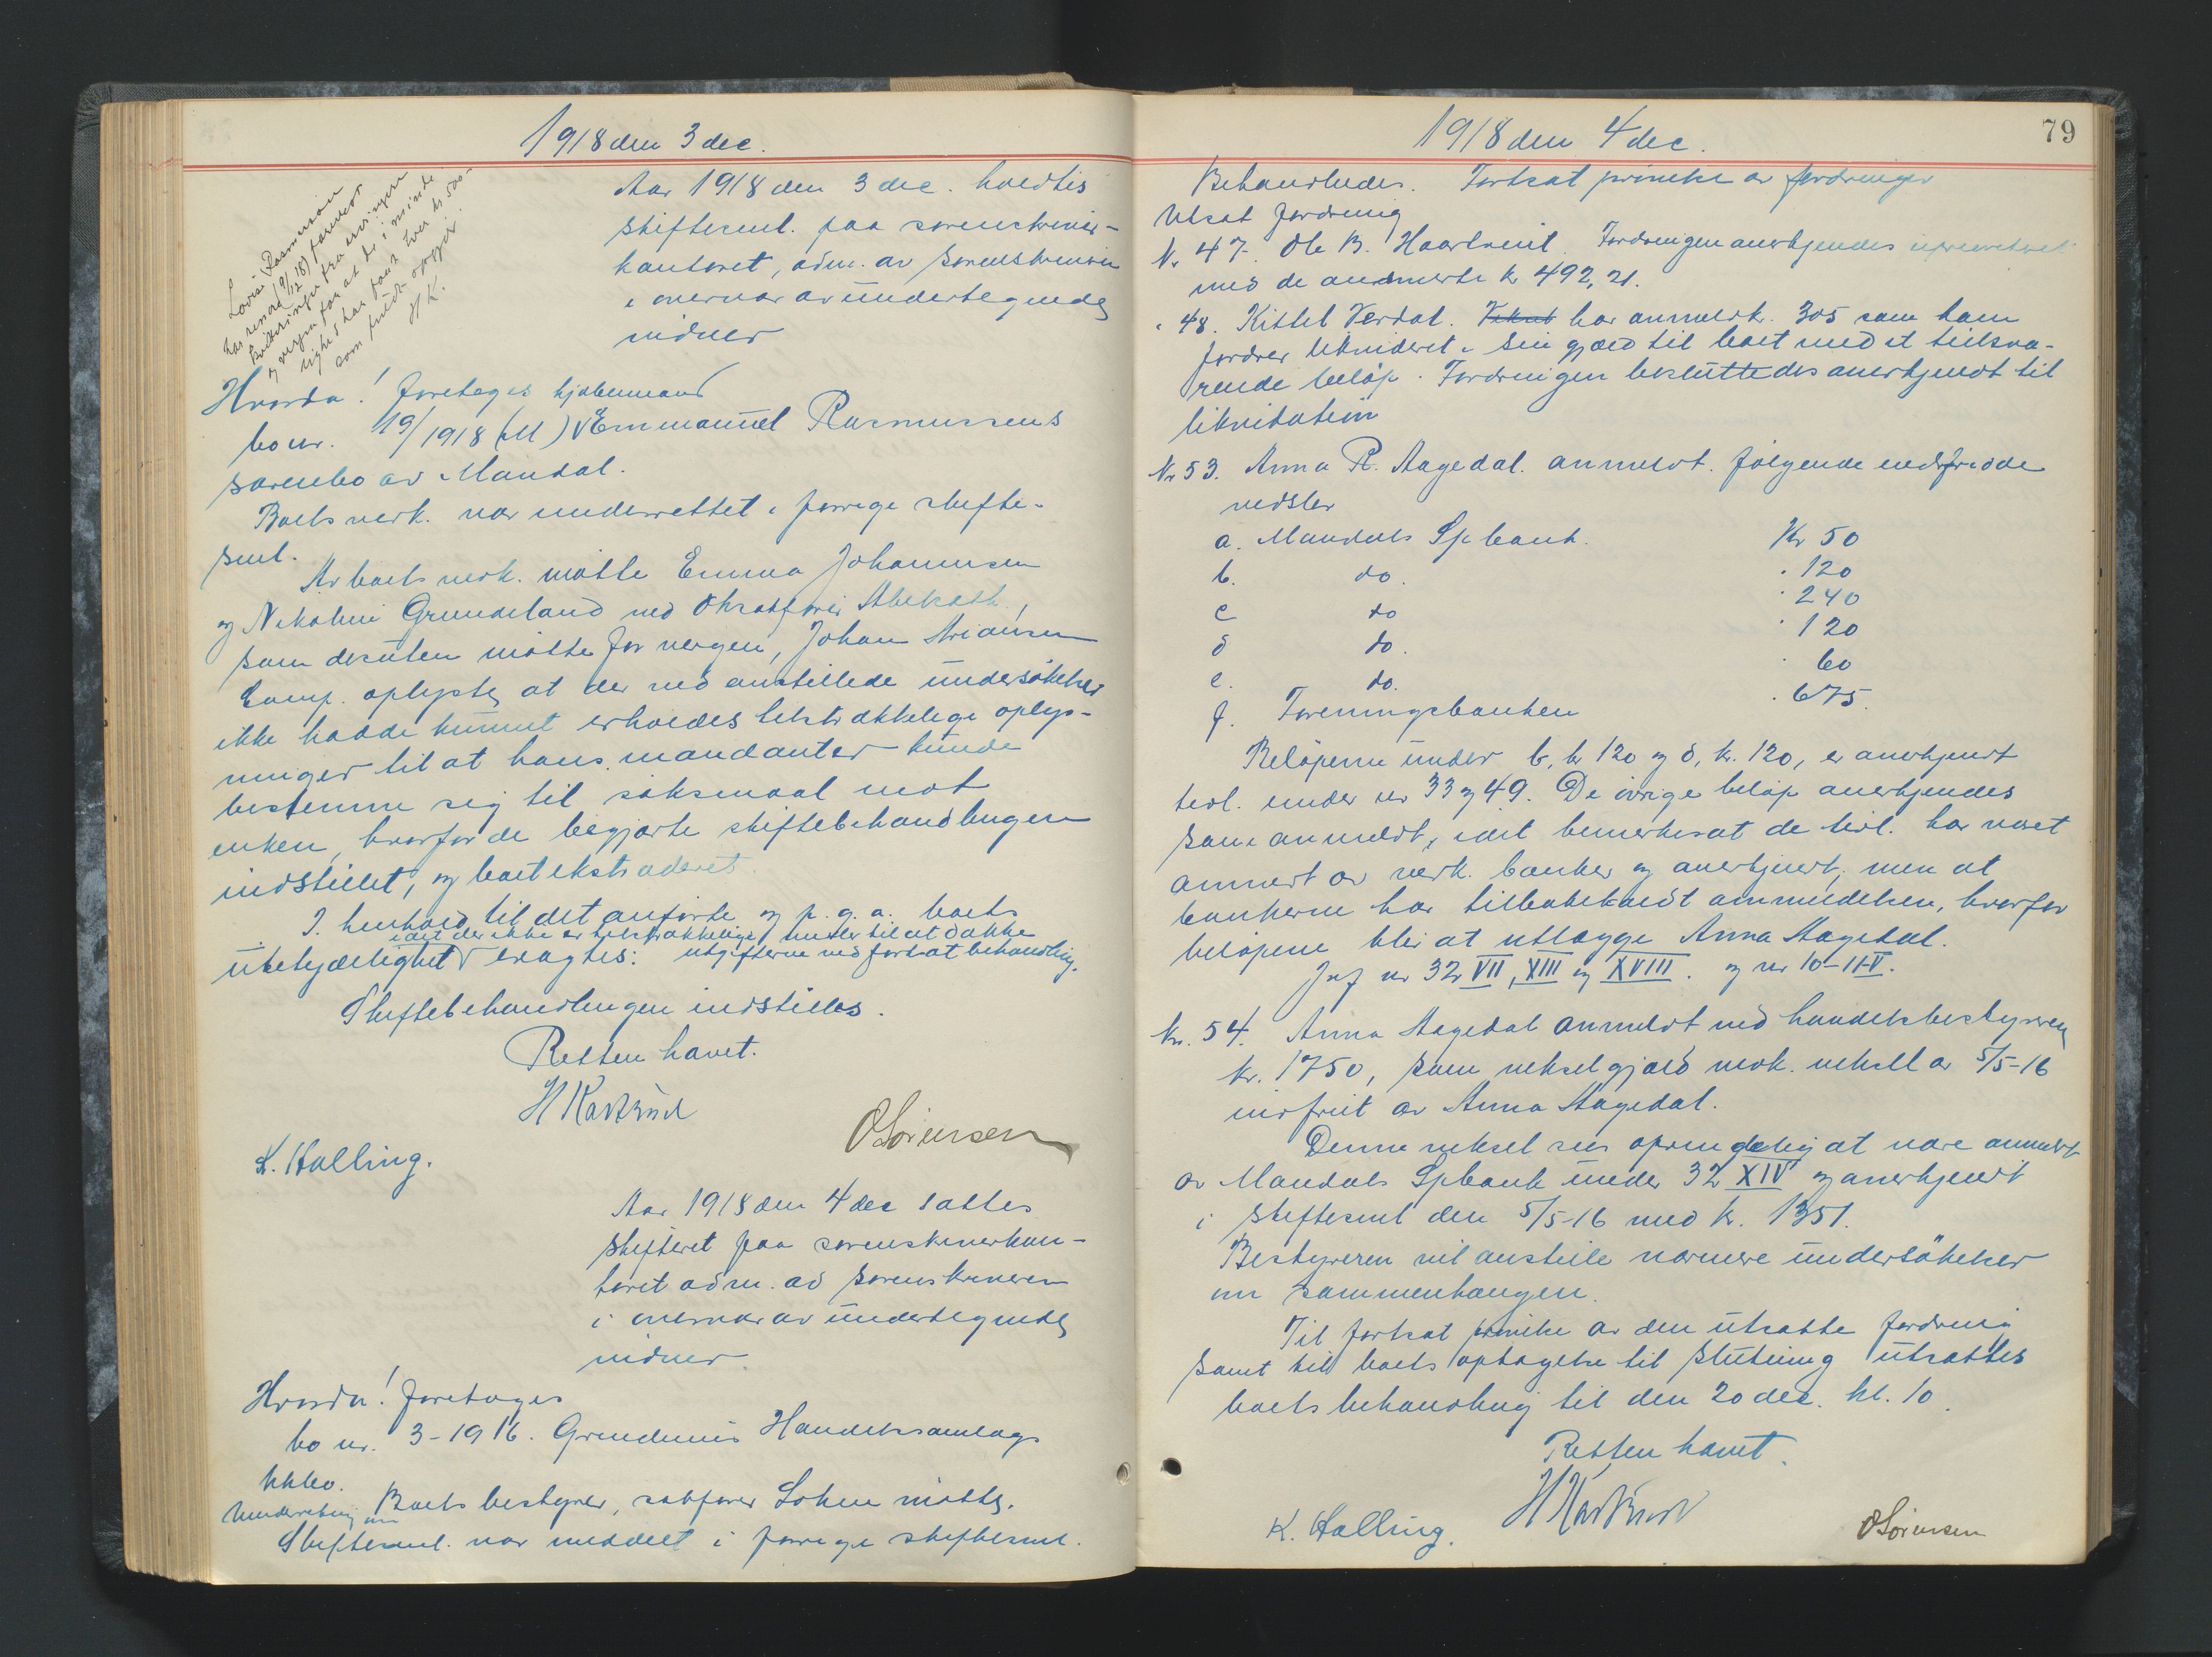 1918 den 3 dec.
Lovise Rasmussen
har senere (9/12 18) forevist
kvitteringer fra arvingene
og vergen for at de i minde-
lighed har faat hver kr 500.-
som fuldt opgjør.
HK.
Aar 1918 den 3 dec. holdtes
skiftesml. paa sorenskriver-
kontoret, adm. av sorenskriveren
i overvær av undertegnede
vidner
Hvorda! foretoges kjøbmand
bo nr. 19/1918 (M) Emmanuel Rasmussens
særeubo av Mandal.
Boets vedk. var underrettet i forrige skifte-
sml.
Av boets vedk. møtte Emma Johannesen
og Nikoline Grundeland ved O.r.sakfører
som desuten møtte for vergen, Johan Ariansen
Comp. oplyste, at der ved anstillede undersøkelser
ikke hadde kunnet erholdes tilstrækkelige oplys-
ninger til at hans mandanter kunde
bestemme sig til søksmaal mot
enken, hvorfor de begjærte skiftebehandlingen
indstillet, og boet ekstraderet.
I henhold til det anførte og p. g. a. boets
idet der ikke er tilstrækkelige midler til at dække
ubetydelighet eragtes: utgifterne ved fortsat behandling.
Skiftebehandlingen indstilles.
Retten hævet.
H Kastrud
K. Halling. O Sørensen
Aar 1918 den 4 dec sattes
skifteret paa sorenskriverkon-
toret adm. av sorenskriveren
i overvær av undertegnede
vidner.
Hvorda! foretoges
bo nr. 3-1916. Grindems Handelssamlags
kkbo.
Boets bestyrer, sakfører Lohne møtte.
Underretning om
Skiftesml. var meddelt i forrige skiftesml.
1918 den 4 dec.
79
Behandledes. Fortsat prøvelse av fordringer
Utsat fordring
Nr 47. Ole B. Haartveit. Fordringen anerkjendes uprioritert
med de anmeldte kr 492,21.
" 48. Kittel Verdal. har anmeldt kr. 305 som han
fordrer likvideret i sin gjæld til boet med et tilsva-
rende beløp. Fordringen besluttedes anerkjendt til
likvidation
Nr 53. Anna R. Aagedal. anmeldt. følgende indfriede
veksler
a. Mandals Spbank. Kr 50
b. do. " 120
c do " 240
d do. " 120
e. do. " 60
f. Foreningsbanken " 675.
Beløpene under b, kr 120 og d, kr. 120, er anerkjendt
tidl. under nr 33 og 49. De øvrige beløp anerkjendes
som anmeldt, idet bemerkes at de tidl. har været
anmeldt av vedk. banker og anerkjendt, men at
bankerne har tilbakekaldt anmeldelsen, hvorfor
beløpene blir at utlægge Anna Aagedal.
Jvf nr 32 VII, XIII og XVIII. og nr 10-11-V.
Nr. 54. Anna Aagedal anmeldt ved handelsbestyreren
kr. 1750, som vekselgjæld vedk. veksel av 5/5-16
indfriet av Anna Aagedal.
Denne veksel sees oprindelig at være anmeldt
av Mandals Spbank under 32 XIV og anerkjendt
i skiftesml den 5/5-16 med kr. 1351.
Bestyreren vil anstille nærmere undersøkelser
om sammenhængen.
Til fortsat prøvelse av den utsatte fordring
samt til boets optagelse til slutning utsattes
boets behandling til den 20 dec. kl. 10.
Retten hævet.
H Kastrud
K. Halling. O Sørensen